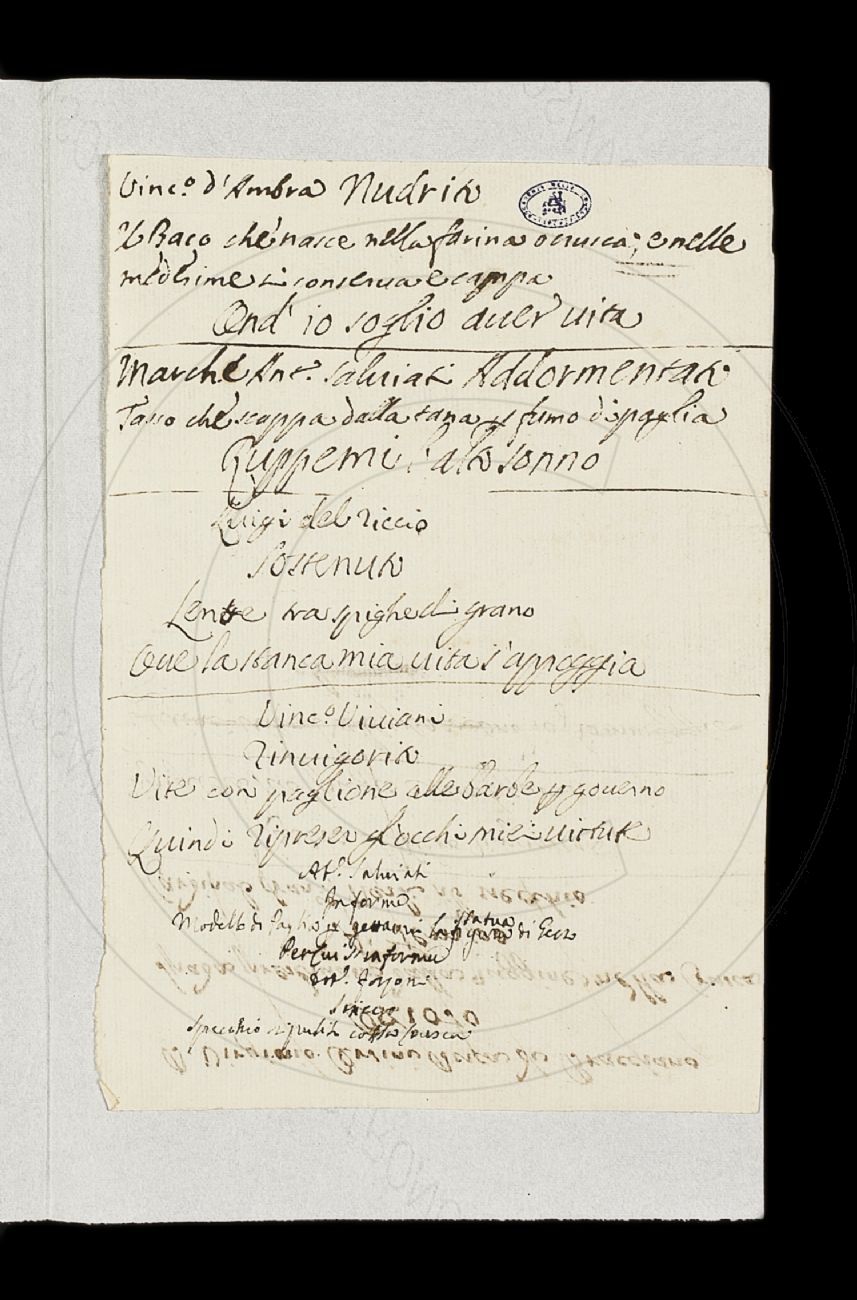 Vinc.º d'Ambra Nudrito
Il Baco che nasce nella farina o crusca; e nelle
medesime si conserua e campa
Ond' io soglio auer uita
Marche Ant.º Saluiati Addormentato
Tasso che scappa dalla tana p fumo di paglia
Ruppemi l'alto sonno
Luigi del Riccio
Sostenuto
Lente tra spighe di grano
Oue la stanca mia uita s'appoggia
Vinc.º Viuiani
Rinuigorito
Vite con paglione alle barbe p gouerno
Quindi ripreser gl'occhi miei uirtute
At.º Saluiati
Informe
Modello di paglia p gettarui la statua di Gesso
Per cui
specchio ripulito colla crusca